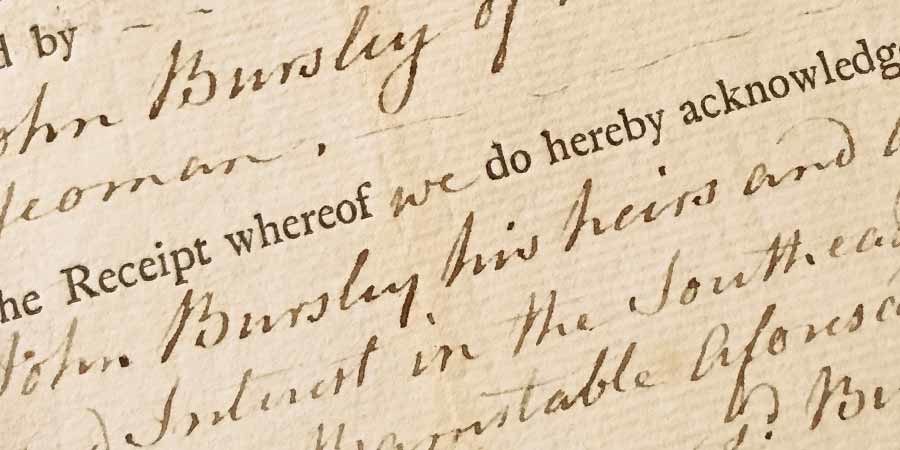 d by
ohn Bursley of
Yeoman.
he Receipt whereof we do hereby acknowledge
John Bursley his heirs and
Interest in the Southea
Barnstable Aforesa
Bu